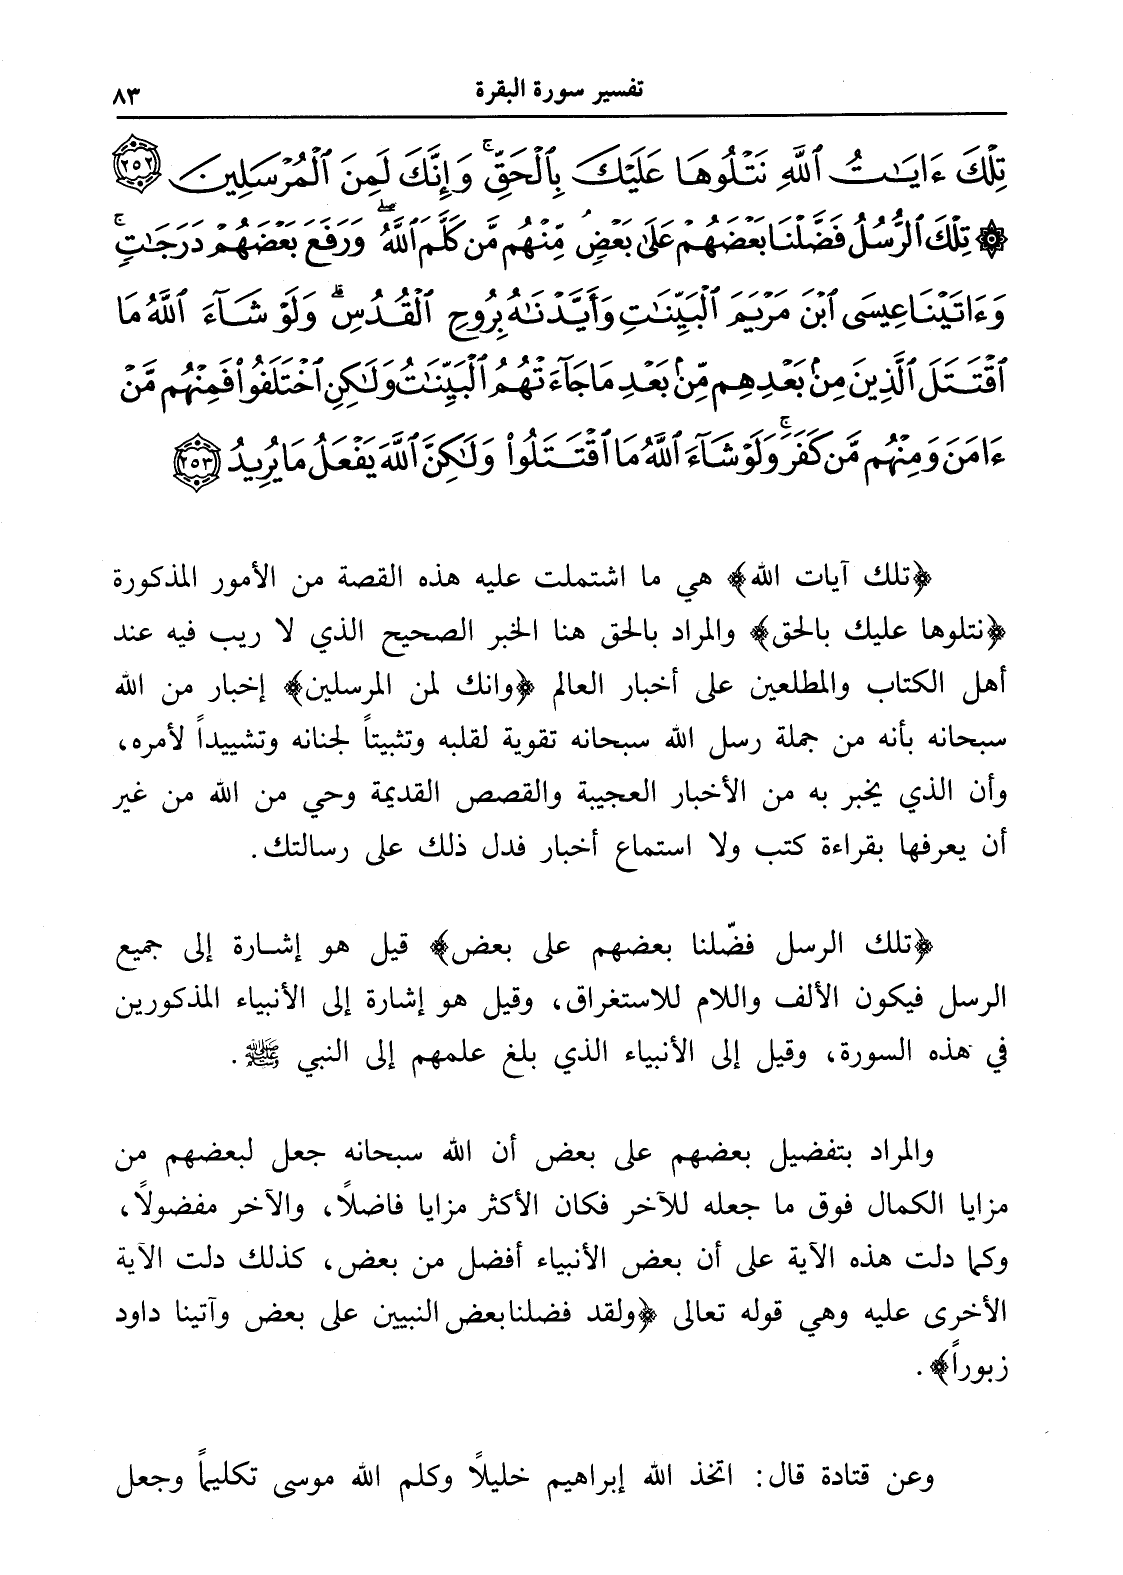 تفسير سورة البقرة ٨٣
تِلْكَ ءَايَٰتُ ٱللَّهِ نَتْلُوهَا عَلَيْكَ بِٱلْحَقِّ ۚ وَإِنَّكَ لَمِنَ ٱلْمُرْسَلِينَ ٢٥٢
۞ تِلْكَ ٱلرُّسُلُ فَضَّلْنَا بَعْضَهُمْ عَلَىٰ بَعْضٍ ۘ مِّنْهُم مَّن كَلَّمَ ٱللَّهُ ۖ وَرَفَعَ بَعْضَهُمْ دَرَجَٰتٍ ۚ
وَءَاتَيْنَا عِيسَى ٱبْنَ مَرْيَمَ ٱلْبَيِّنَٰتِ وَأَيَّدْنَٰهُ بِرُوحِ ٱلْقُدُسِ ۗ وَلَوْ شَآءَ ٱللَّهُ مَا
ٱقْتَتَلَ ٱلَّذِينَ مِنۢ بَعْدِهِم مِّنۢ بَعْدِ مَا جَآءَتْهُمُ ٱلْبَيِّنَٰتُ وَلَٰكِنِ ٱخْتَلَفُوا۟ فَمِنْهُم مَّنْ
ءَامَنَ وَمِنْهُم مَّن كَفَرَ ۚ وَلَوْ شَآءَ ٱللَّهُ مَا ٱقْتَتَلُوا۟ وَلَٰكِنَّ ٱللَّهَ يَفْعَلُ مَا يُرِيدُ ٢٥٣
﴿تلك آيات الله﴾ هي ما اشتملت عليه هذه القصة من الأمور المذكورة
﴿نتلوها عليك بالحق﴾ والمراد بالحق هنا الخبر الصحيح الذي لا ريب فيه عند
أهل الكتاب والمطلعين على أخبار العالم ﴿وانك لمن المرسلين﴾ إخبار من الله
سبحانه بأنه من جملة رسل الله سبحانه تقوية لقلبه وتثبيتاً لجنانه وتشييداً لأمره،
وأن الذي يخبر به من الأخبار العجيبة والقصص القديمة وحي من الله من غير
أن يعرفها بقراءة كتب ولا استماع أخبار فدل ذلك على رسالتك.
﴿تلك الرسل فضّلنا بعضهم على بعض﴾ قيل هو إشارة إلى جميع
الرسل فيكون الألف واللام للاستغراق، وقيل هو إشارة إلى الأنبياء المذكورين
في هذه السورة، وقيل إلى الأنبياء الذي بلغ علمهم إلى النبي ﷺ.
والمراد بتفضيل بعضهم على بعض أن الله سبحانه جعل لبعضهم من
مزايا الكمال فوق ما جعله للآخر فكان الأكثر مزايا فاضلاً، والآخر مفضولاً،
وكما دلت هذه الآية على أن بعض الأنبياء أفضل من بعض، كذلك دلت الآية
الأخرى عليه وهي قوله تعالى ﴿ولقد فضلنا بعض النبيين على بعض وآتينا داود
زبوراً﴾.
وعن قتادة قال: اتخذ الله إبراهيم خليلاً وكلم الله موسى تكليماً وجعل